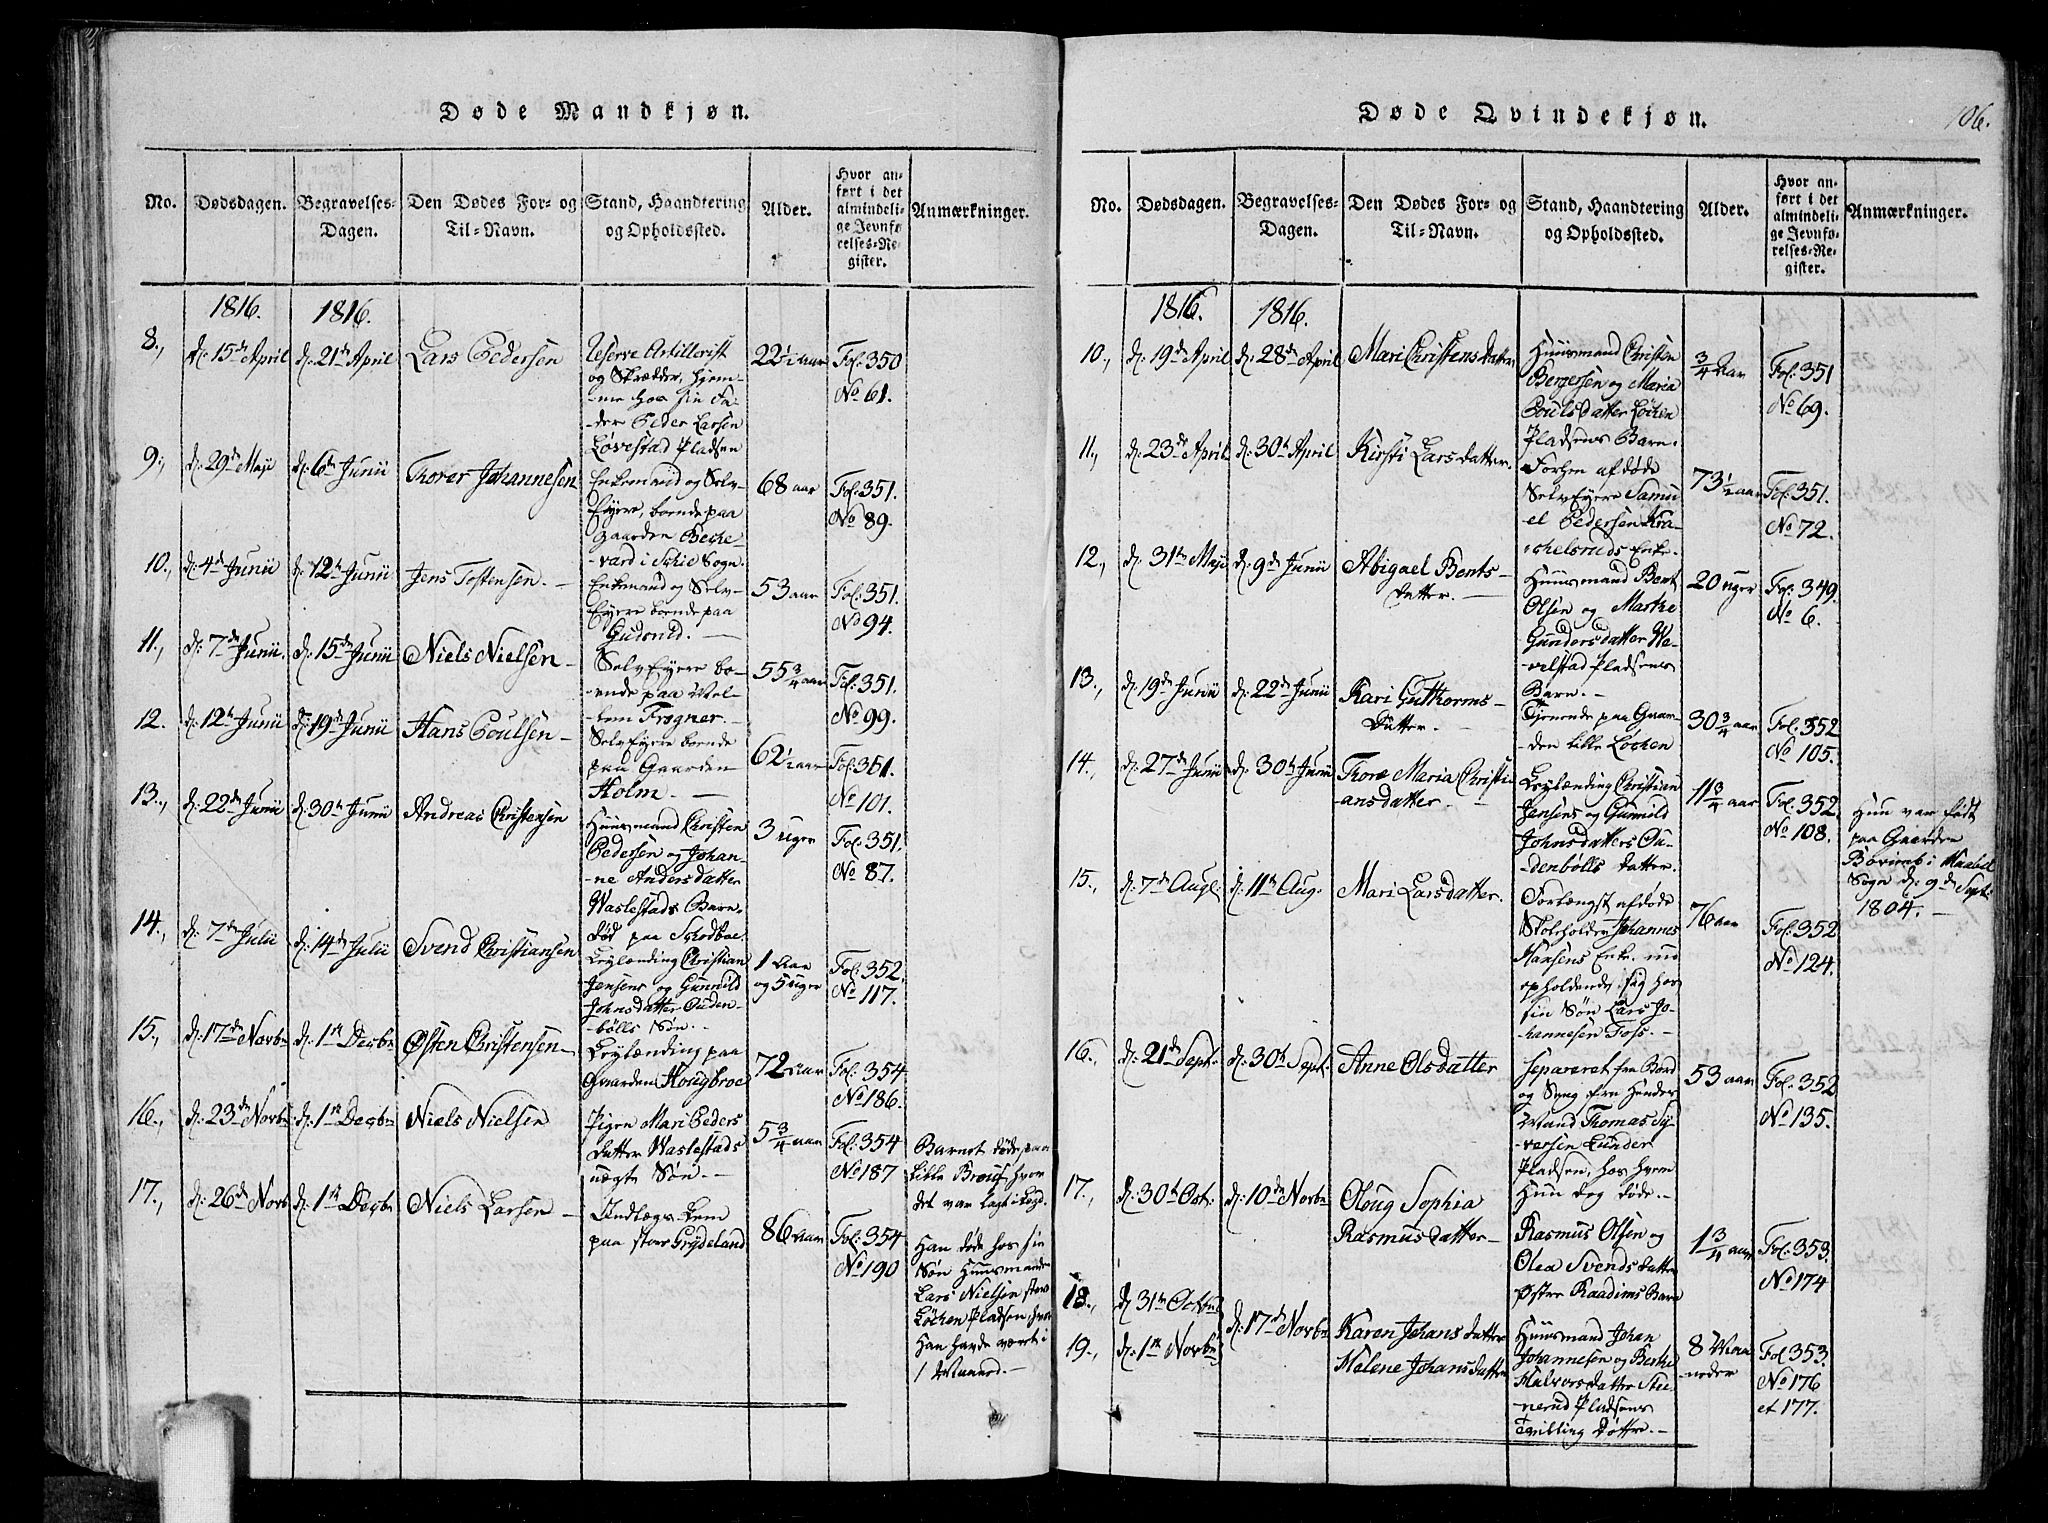 Døde Mandkjøn.
No.
Dødsdagen.
Begravelses-
Dagen.
Den Dødes For- og
Til-Navn.
Stand, Haandtering
og Opholdssted.
Alder.
Hvor an-
ført i det
almindeli-
ge Jevnfø-
relses-Re-
gister.
Anmærkninger.
1816. 1816.
8., d: 15de April d: 21de April Lars Pedersen
Reserve Artillerist
og Skrædder, hjem-
me hos sin Fa-
der Peder Larsen
Løvestad Pladsen
22½ aar
Fol: 350
No 61.
9., d: 29de Maji d: 6te Junii Thorer Johannesen
Enkemand og Selv-
Ejere, boende paa
Gaarden
i Schie Sogn.
68 aar
Fol: 351.
No 89.
10., d: 4de Junii d: 12te Junii Jens Tostensen.
Enkemand og Selv-
Ejere boende paa
53 aar
Fol: 351.
No 94.
11., d: 7de Junii. d: 15de Junii Niels Nielsen
SelvEjere bo-
ende paa Mel-
lem Frogner.
55¾ aar
Fol: 351.
No 99.
12. d: 12te Junii d: 19de Junii Hans Poulsen
SelvEjere boende
paa Gaarden
Holm.
62½ aar
Fol: 351.
No 101.
13., d: 22de Junii d: 30te Junii Andreas Christensen
Huusmand Christen
Pedersen og Johan-
ne Andersdatter
Waslestads Barn.
død paa
3 uger
Fol: 351.
No 87.
14., d: 7de Julii d: 14de Julii Svend Christiansen
Leylending Christian
Jensens og Gunnild
Johnsdatter Ouden-
bølls Søn.
1 Aar
og 5 uger
Fol: 352.
No 117.
15., d: 17de Novbr d: 1ste Decbr Østen Christensen
Leylænding paa
Gaarden Hougbroe
72 aar
Fol: 354
No 186.
16., d: 23de Novbr d: 1ste Decbr Niels Nielsen
Pigen Mari Peders
datter Waslestads
uægte Søn.
5¾ aar
Fol: 354
No 187
Barnet døde paa
Lille hvor
det var lagt i Lægd.
17., d: 26de Novb d: 1ste Decbr Niels Larsen
Indlægs-Lem
paa store Grydeland
86 aar
Fol: 354
No 190
Han døde hos sin
Søn Huusmand
Lars Nielsen store
Løchen Pladsen hvor
Han havde været i
1 Maaned.
Døde Qvindekjøn.
106.
No.
Dødsdagen.
Begravelses-
Dagen.
Den Dødes For- og
Til-Navn.
Stand, Haandtering
og Opholdssted.
Alder.
Hvor an-
ført i det
almindeli-
ge Jevnfø-
relses-Re-
gister.
Anmærkninger.
1816. 1816.
10., d: 19de April d: 28de April Mari Christensdatter
Huusmand Christen
Bergersen og Maria
Poulsdatter Løchen
Pladsens Barn.
¾ Aar
Fol: 351
No 69.
11., d: 23de April d: 30te April Kirsti Larsdatter.
afdøde
SelvEjere Samu
el Pedersen Kra-
chelsruds Enke.
73½ aar
Fol: 351.
No 72.
12., d: 31te Maji d: 9de Junii Abigael Bents-
datter.
Huusmand Bent
Olsen og Marthe
Gundersdatter We-
velstad Pladsens
Barn.
20 uger
Fol: 349.
No 6.
13., d: 19de Junii d: 22de Junii Kari Gutthorms-
Datter.
Tjenende paa Gaar-
den lille Løchen
30¾ aar
Fol: 352
No 105.
14., d: 27de Junii d: 30te Junii Thore Maria Christi-
ansdatter.
Leylænding Christian
Jensens og Gunnild
Johnsdatters Ou-
denbølls datter.
11¾ aar
Fol: 352.
No 108.
Hun var født
paa Gaarden
i
Sogn d: 9de Septr
1804.
15., d: 7de Augl: d: 11te Aug: Mari Larsdatter.
Forlængst afdøde
Skoleholder Johannes
Hansens Enke, nu
opholdende sig hos
sin Søn Lars Jo-
hannesen Foss.
76 aar
Fol: 352
No 124.
16., d: 21de Septr. d: 30te Septr. Anne Olsdatter
Separeret fra Bord
og Seng fra Hendes
Mand Thomas Sy-
versen Lunder
Pladsen, hos hvem
Hun dog døde.
53 aar
Fol: 352
No 135.
17., d: 30te Oct: d: 10de Novbr Oloug Sophia
Rasmusdatter
Rasmus Olsen og
Olea Svendsdatter
Østre Raadims Barn
1¾ aar
Fol: 353.
No 174
18., d: 31te Octbr
19., d: 1ste Novbr d: 17de Novbr Karen Johansdatter
Helene Johansdatter
Huusmand Johan
Johannesen og Berthe
Halvorsdatter Stee-
nerud Pladsens
Tvilling Døttre.
8 Maa-
neder
Fol: 353.
No 176
et 177.